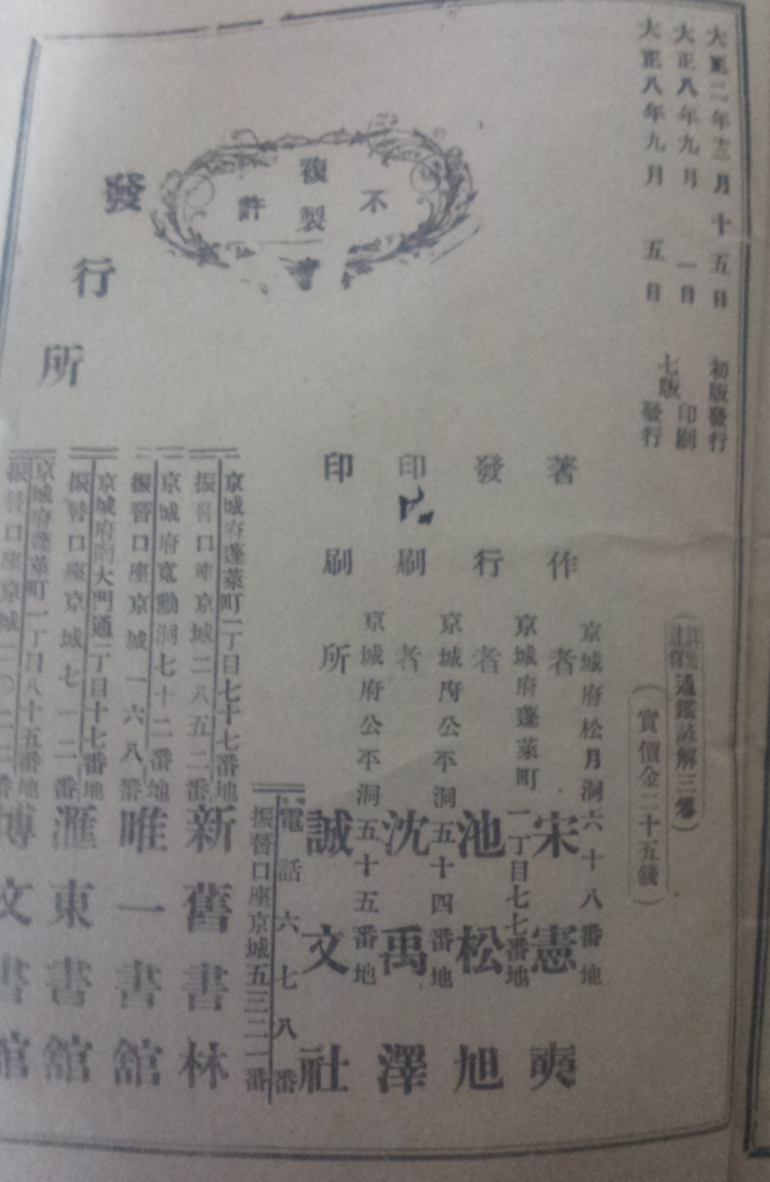 大正二年十二月十五日 初版發行
大正八年九月一日 七版 印刷
大正八年九月五日 發行
通鑑諺解三
實價金二十五錢
不許複製
京城府松月洞六十八番地
著作者 宋憲奭
京城府蓬萊町一丁目七七番地
發行者 池松旭
京城府公平洞五十四番地
印刷者 沈禹澤
京城府公平洞五十五番地
印刷所 誠文社
電話六七八番
振替口座京城五三二一番
發行所
京城府蓬萊町一丁目七十七番地
振替口座京城二八五二番
新舊書林
京城府寬勳洞七十二番地
振替口座京城一六八番
唯一書舘
京城府南大門通二丁目十七番地
振替口座京城七一二番
滙東書舘
京城府蓬萊町一丁目八十五番地
振替口座京城二〇二三番
博文書舘